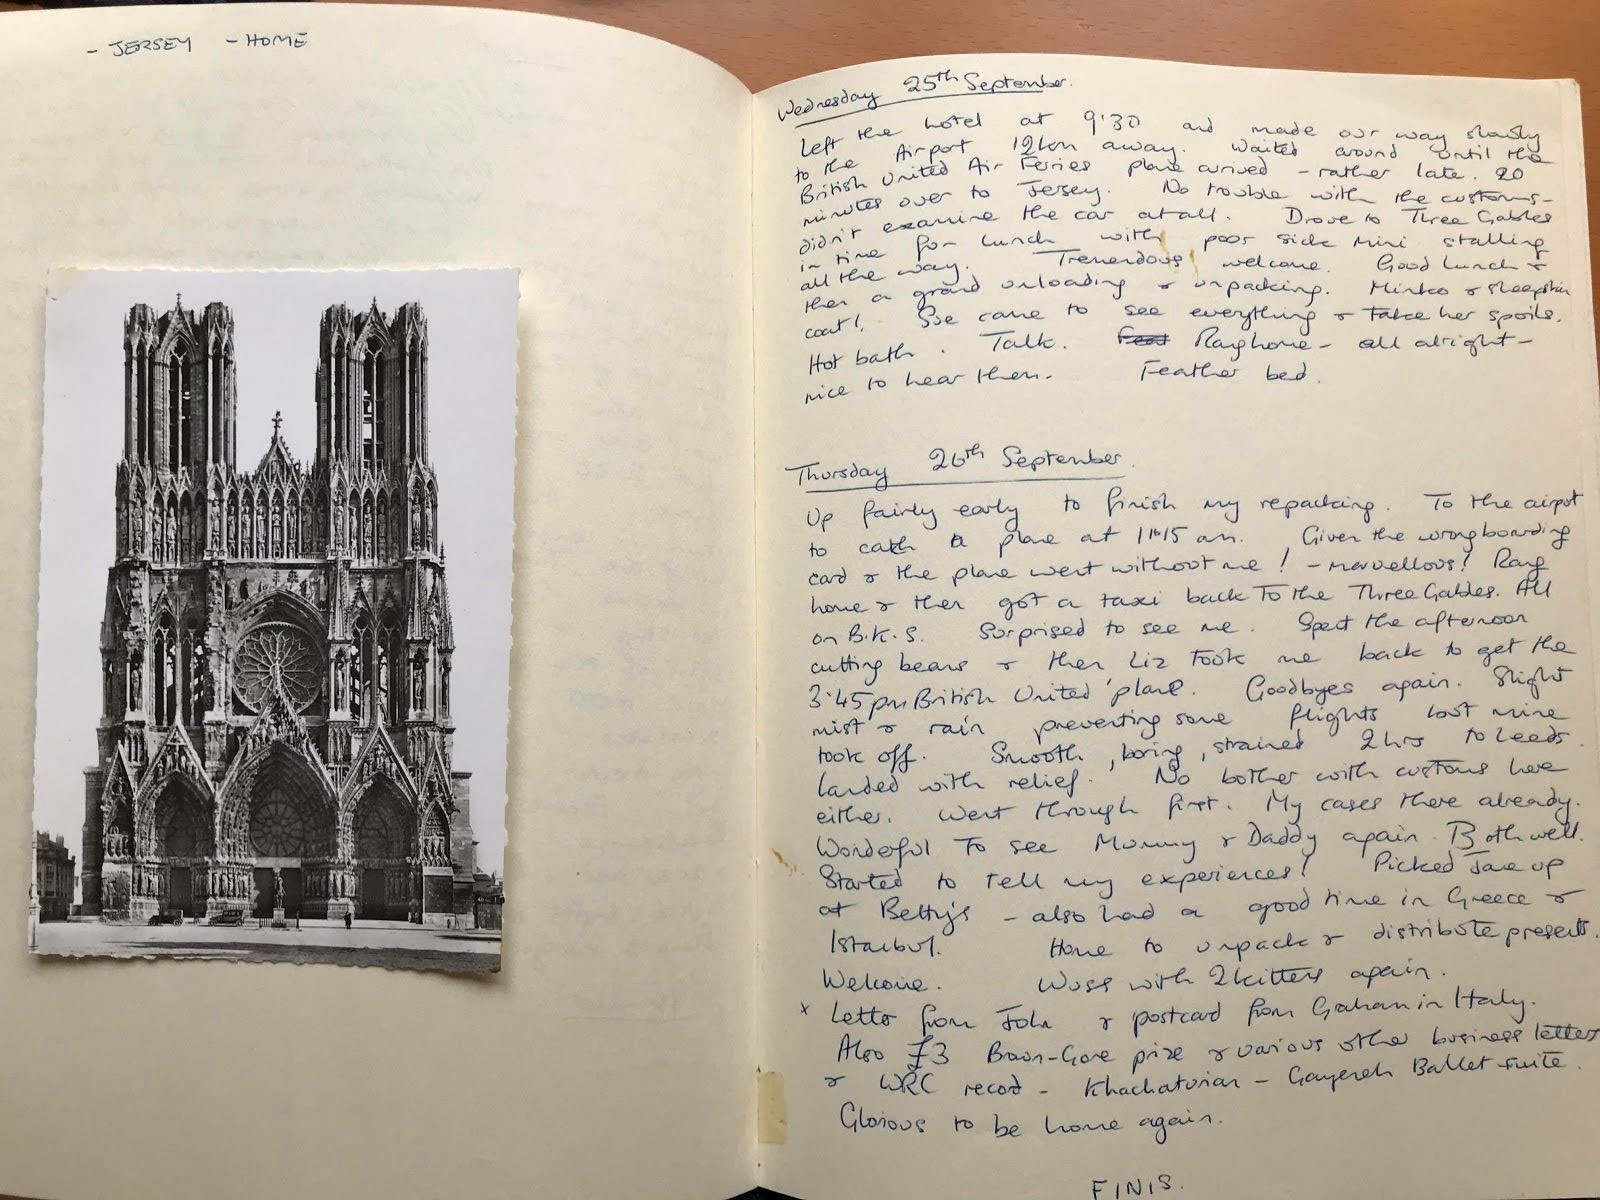 - JERSEY - HOME
Wednesday 25th September.
Left the hotel at 9.30 and made our way slowly
to the Airport 12km away. Waited around until the
British United Air Ferries plane arrived - rather late. 20
minutes over to Jersey. No trouble with the customs -
didn't examine the car at all. Drove to Three Gables
in time for lunch with poor sick Mini stalling
all the way. Tremendous welcome. Good lunch &
then a grand unloading & unpacking. Minko & sheepskin
coat! Sue came to see everything & take her spoils.
Hot bath. Talk. Rang home - all alright -
nice to hear them. Feather bed.
Thursday 26th September.
Up fairly early to finish my repacking. To the airport
to catch a plane at 11.15 am. Given the wrong boarding
card & the plane went without me! - marvellous! Rang
home & then got a taxi back to the Three Gables. All
on B.K.S. Surprised to see me. Spent the afternoon
cutting beans & then Liz took me back to get the
3.45pm British United plane. Goodbyes again. Slight
mist & rain preventing some flights but mine
took off. Smooth, boring, strained 2 hrs to Leeds.
Landed with relief. No bother with customs here
either. Went through first. My cases there already.
Wonderful to see Mummy & Daddy again. Both well.
Started to tell my experiences! Picked Jane up
at Betty's - also had a good time in Greece &
Istanbul. Home to unpack & distribute presents.
Welcome. Wuss with 2 kittens again.
x Letter from John & postcard from Graham in Italy.
Also £3 prize & various other business letters
& WRC record - Khachaturian - Gayeneh Ballet suite.
Glorious to be home again.
FINIS.